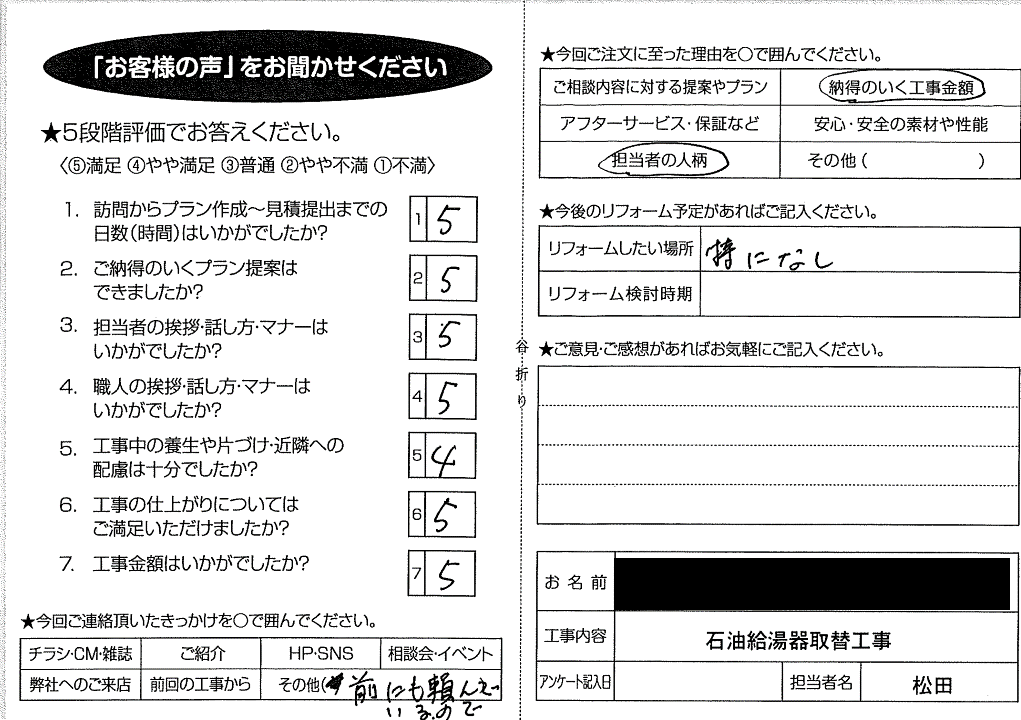 「お客様の声」をお聞かせください
★5段階評価でお答えください。
〈⑤満足 ④やや満足 ③普通 ②やや不満 ①不満〉
1. 訪問からプラン作成～見積提出までの
日数(時間)はいかがでしたか?
1 5
2. ご納得のいくプラン提案は
できましたか?
2 5
3. 担当者の挨拶・話し方・マナーは
いかがでしたか?
3 5
4. 職人の挨拶・話し方・マナーは
いかがでしたか?
4 5
5. 工事中の養生や片づけ・近隣への
配慮は十分でしたか?
5 4
6. 工事の仕上がりについては
ご満足いただけましたか?
6 5
7. 工事金額はいかがでしたか?
7 5
★今回ご連絡頂いたきっかけを○で囲んでください。
チラシ・CM・雑誌 ご紹介 HP・SNS 相談会・イベント
弊社へのご来店 前回の工事から その他( 前にも頼んで
いるので
谷折り
★今回ご注文に至った理由を○で囲んでください。
ご相談内容に対する提案やプラン 納得のいく工事金額
アフターサービス・保証など 安心・安全の素材や性能
担当者の人柄 その他( )
★今後のリフォーム予定があればご記入ください。
リフォームしたい場所 特になし
リフォーム検討時期
★ご意見・ご感想があればお気軽にご記入ください。
お名前
工事内容 石油給湯器取替工事
アンケート記入日 担当者名 松田